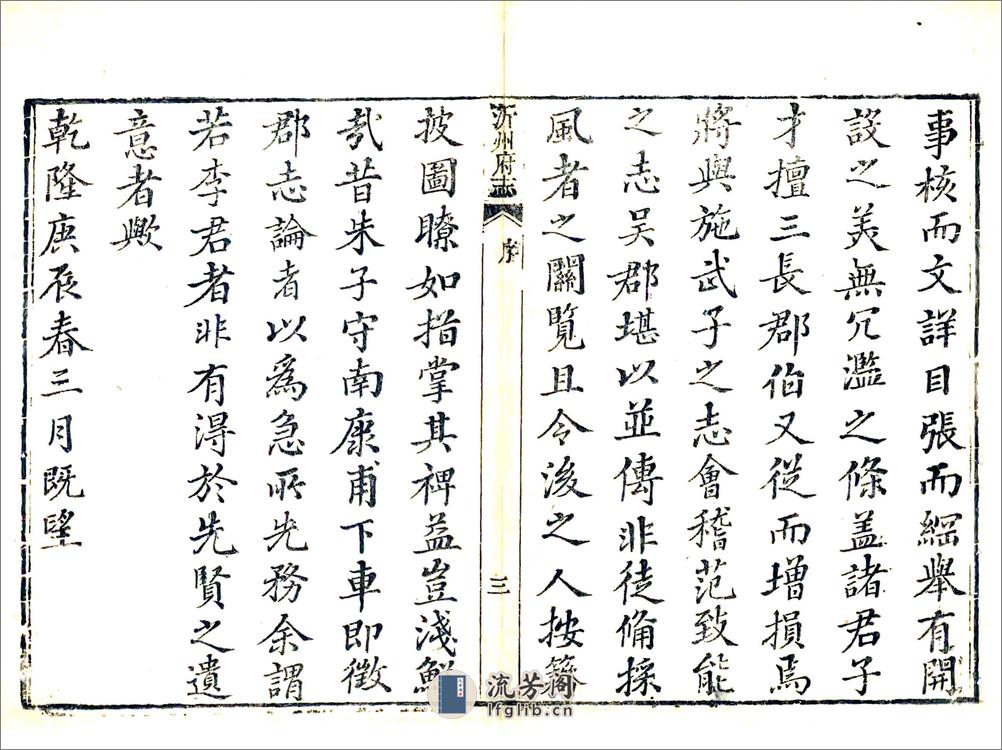 事核而文詳目張而綱舉有開
設之美無冗濫之條盖諸君子
才擅三長郡伯又從而增損焉
將與施武子之志會稽范致能
之志吳郡堪以並傳非徒俻採
風者之關覽且令後之人按籍
沂州府志
序
三
披圖瞭如指掌其裨益豈淺鮮
㢤昔朱子守南康甫下車即徵
郡志論者以爲急所先務余謂
若李君者非有得於先賢之遺
意者歟
乾隆庚辰春三月既望
流芳阁
lfglib.cn